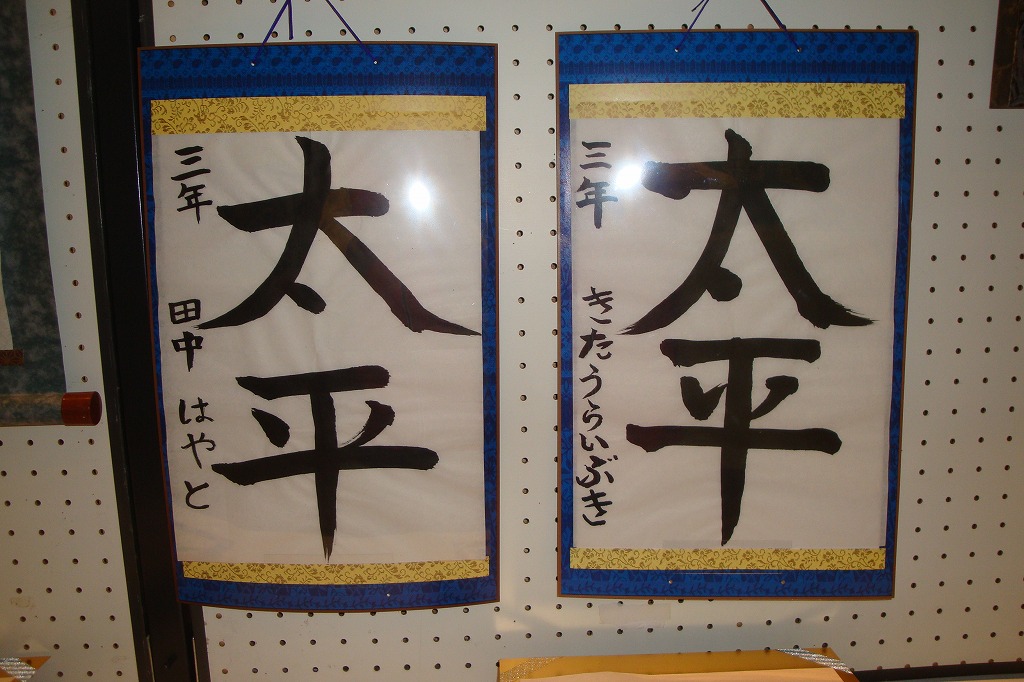 太平
三年 田中 はやと
太平
三年 きたうらいぶき